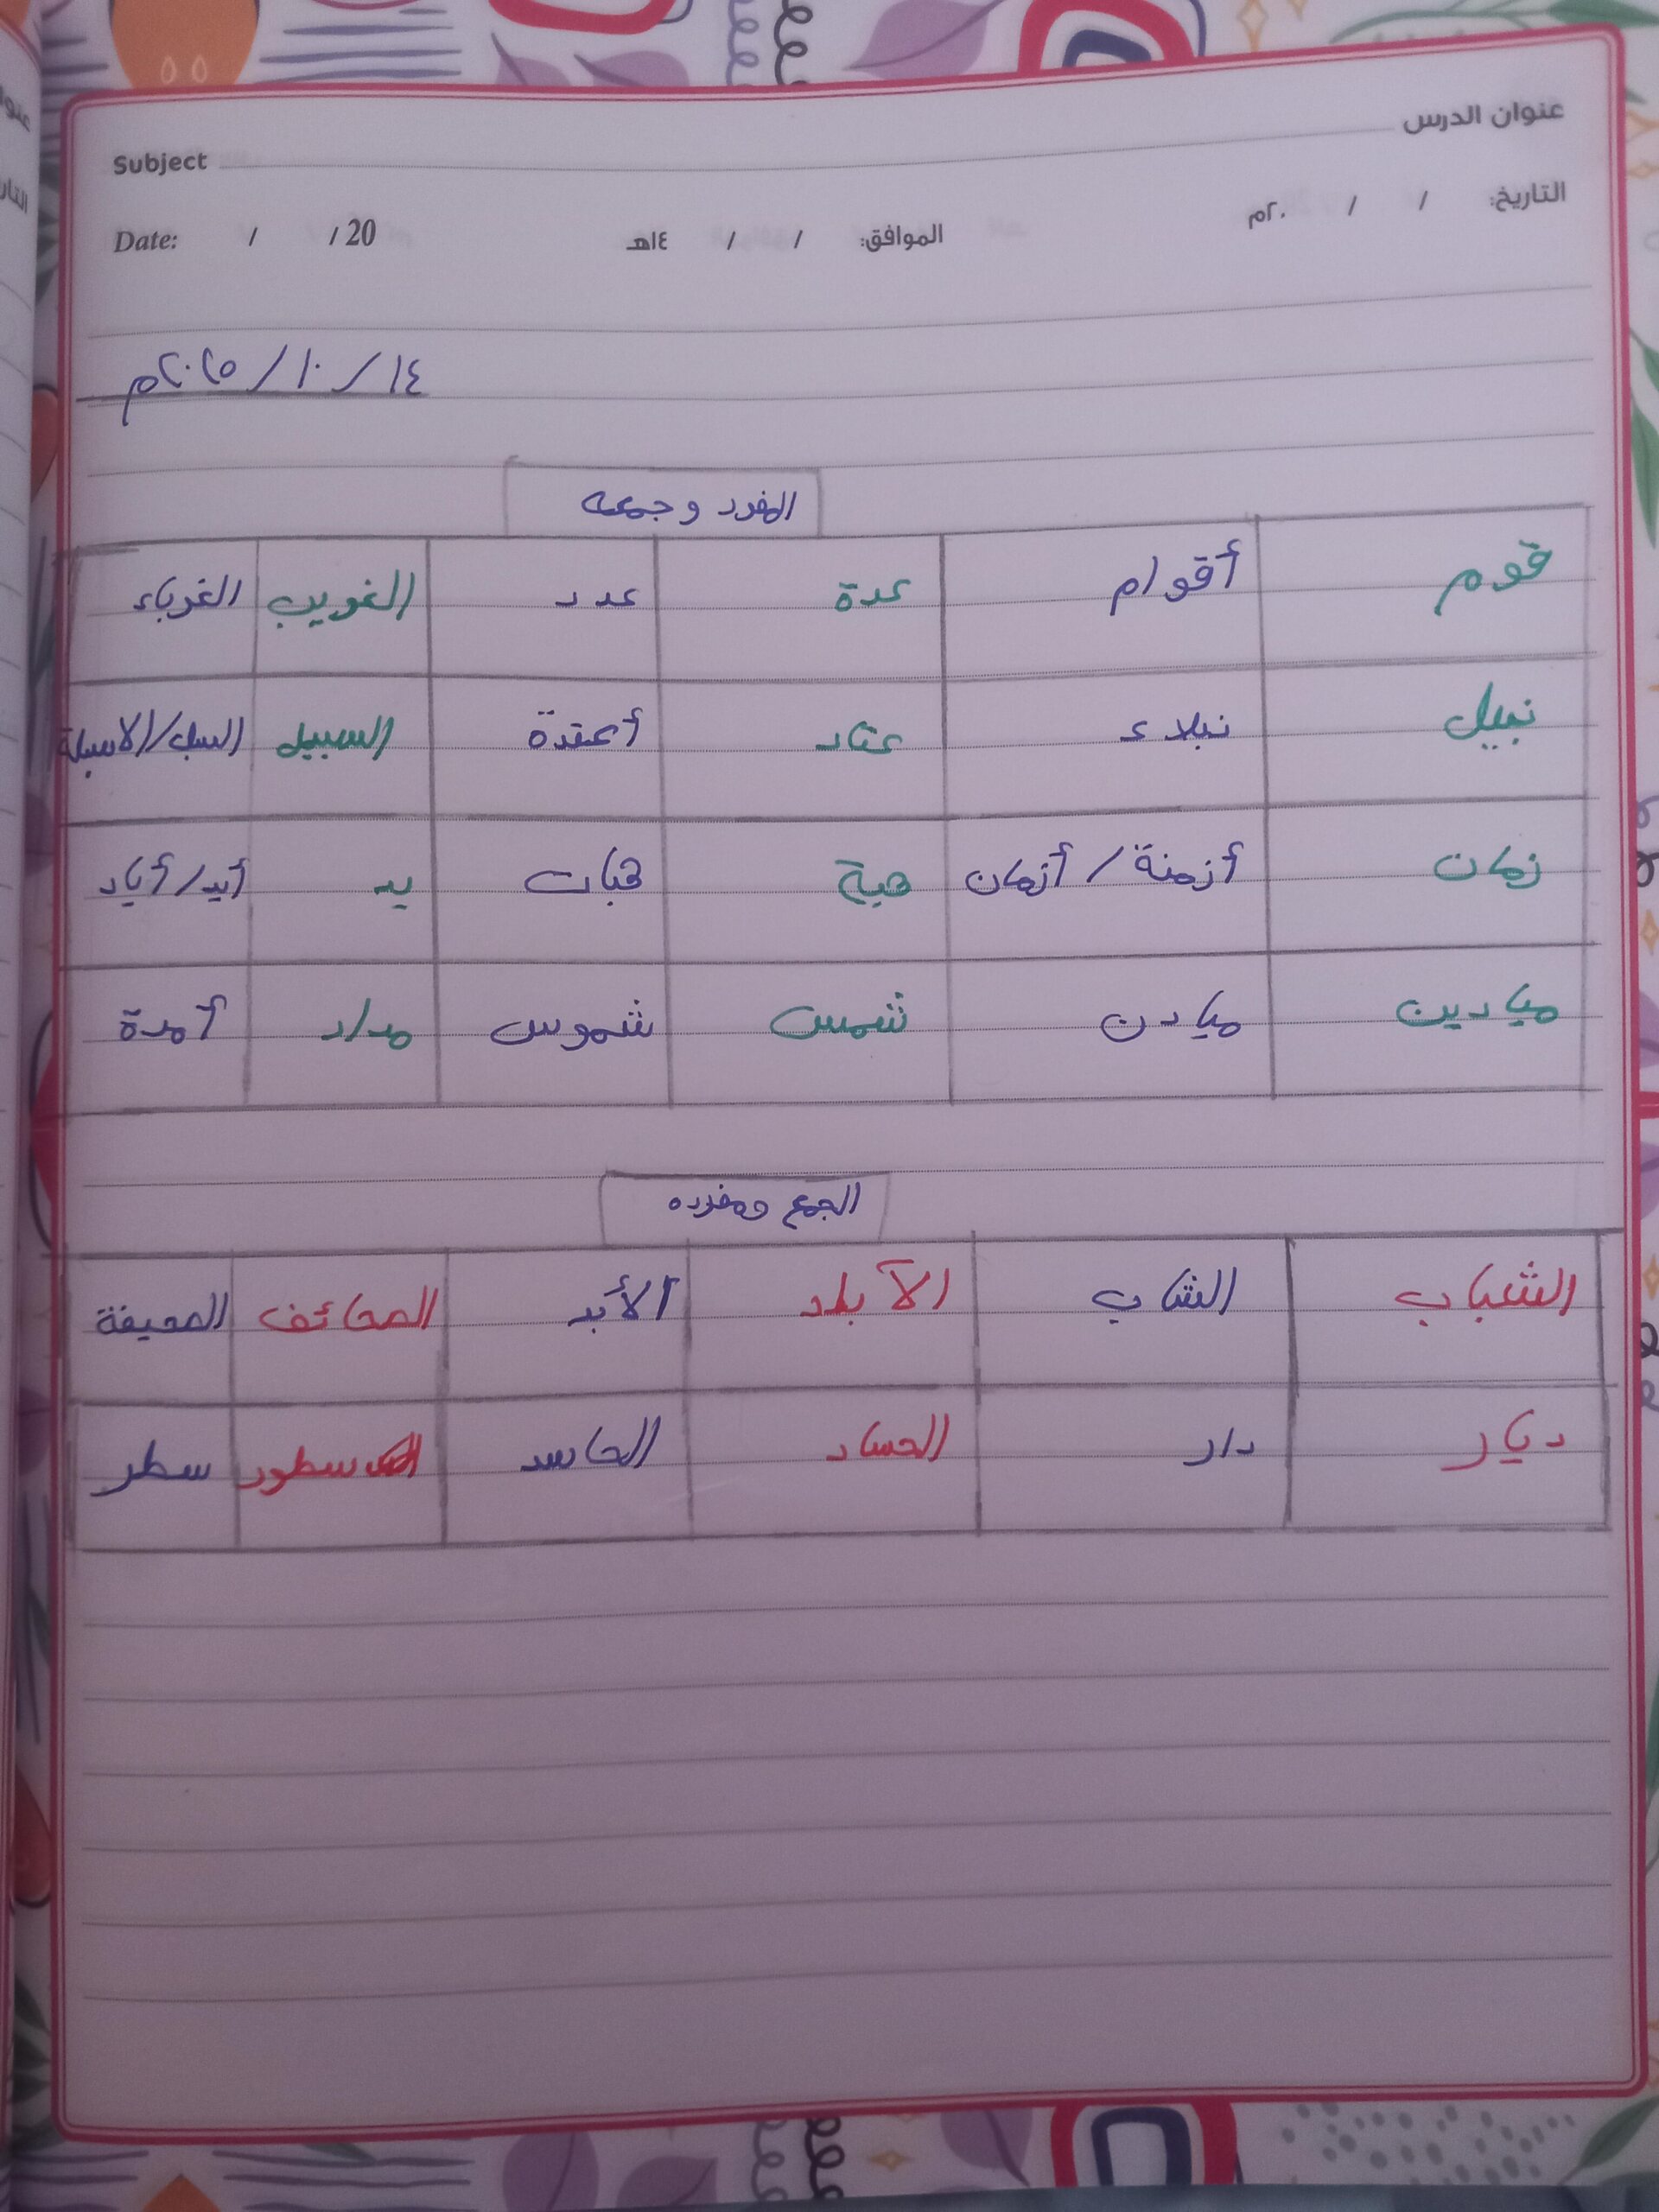 عنوان الدرس Subject
التاريخ: / / ٢٠م الموافق: / / ١٤هـ Date: / / 20
١٤/١٠/٢٠٢٥م
المفرد وجمعه
قوم أقوام عدة عدد الغريب الغرباء
نبيل نبلاء عتاد أعتدة السبيل السبل/الاسبلة
زمان أزمنة/أزمان هبة هبات يد أيد/أياد
ميادين ميادن شمس شموس مداد أمدة
الجمع ومفرده
الشباب الشاب الآباد الأبد الصحائف الصحيفة
ديار دار الحساد الحاسد سطور سطر